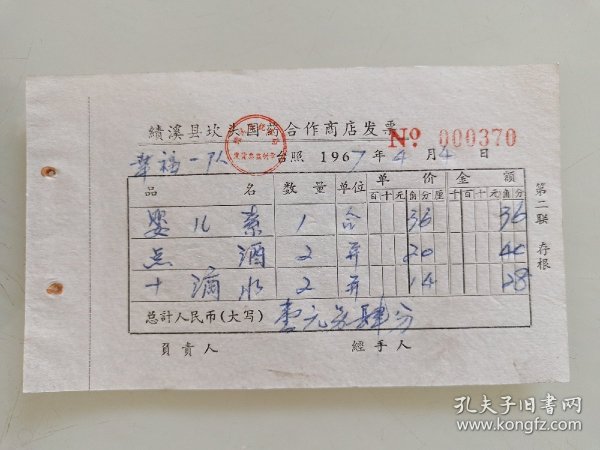 績溪县坎头国药合作商店发票
No 000370
幸福一队 台照 1967年4月4日
品名 数量 单位 单价 金额
百十元角分厘 千百十元角分
婴儿素 1 合 36 36
碘酒 2 并 20 40
十滴水 2 并 14 28
总計人民币(大写) 壹元另肆分
負責人 經手人
第二联 存根
孔夫子旧书网
www.kongfz.com